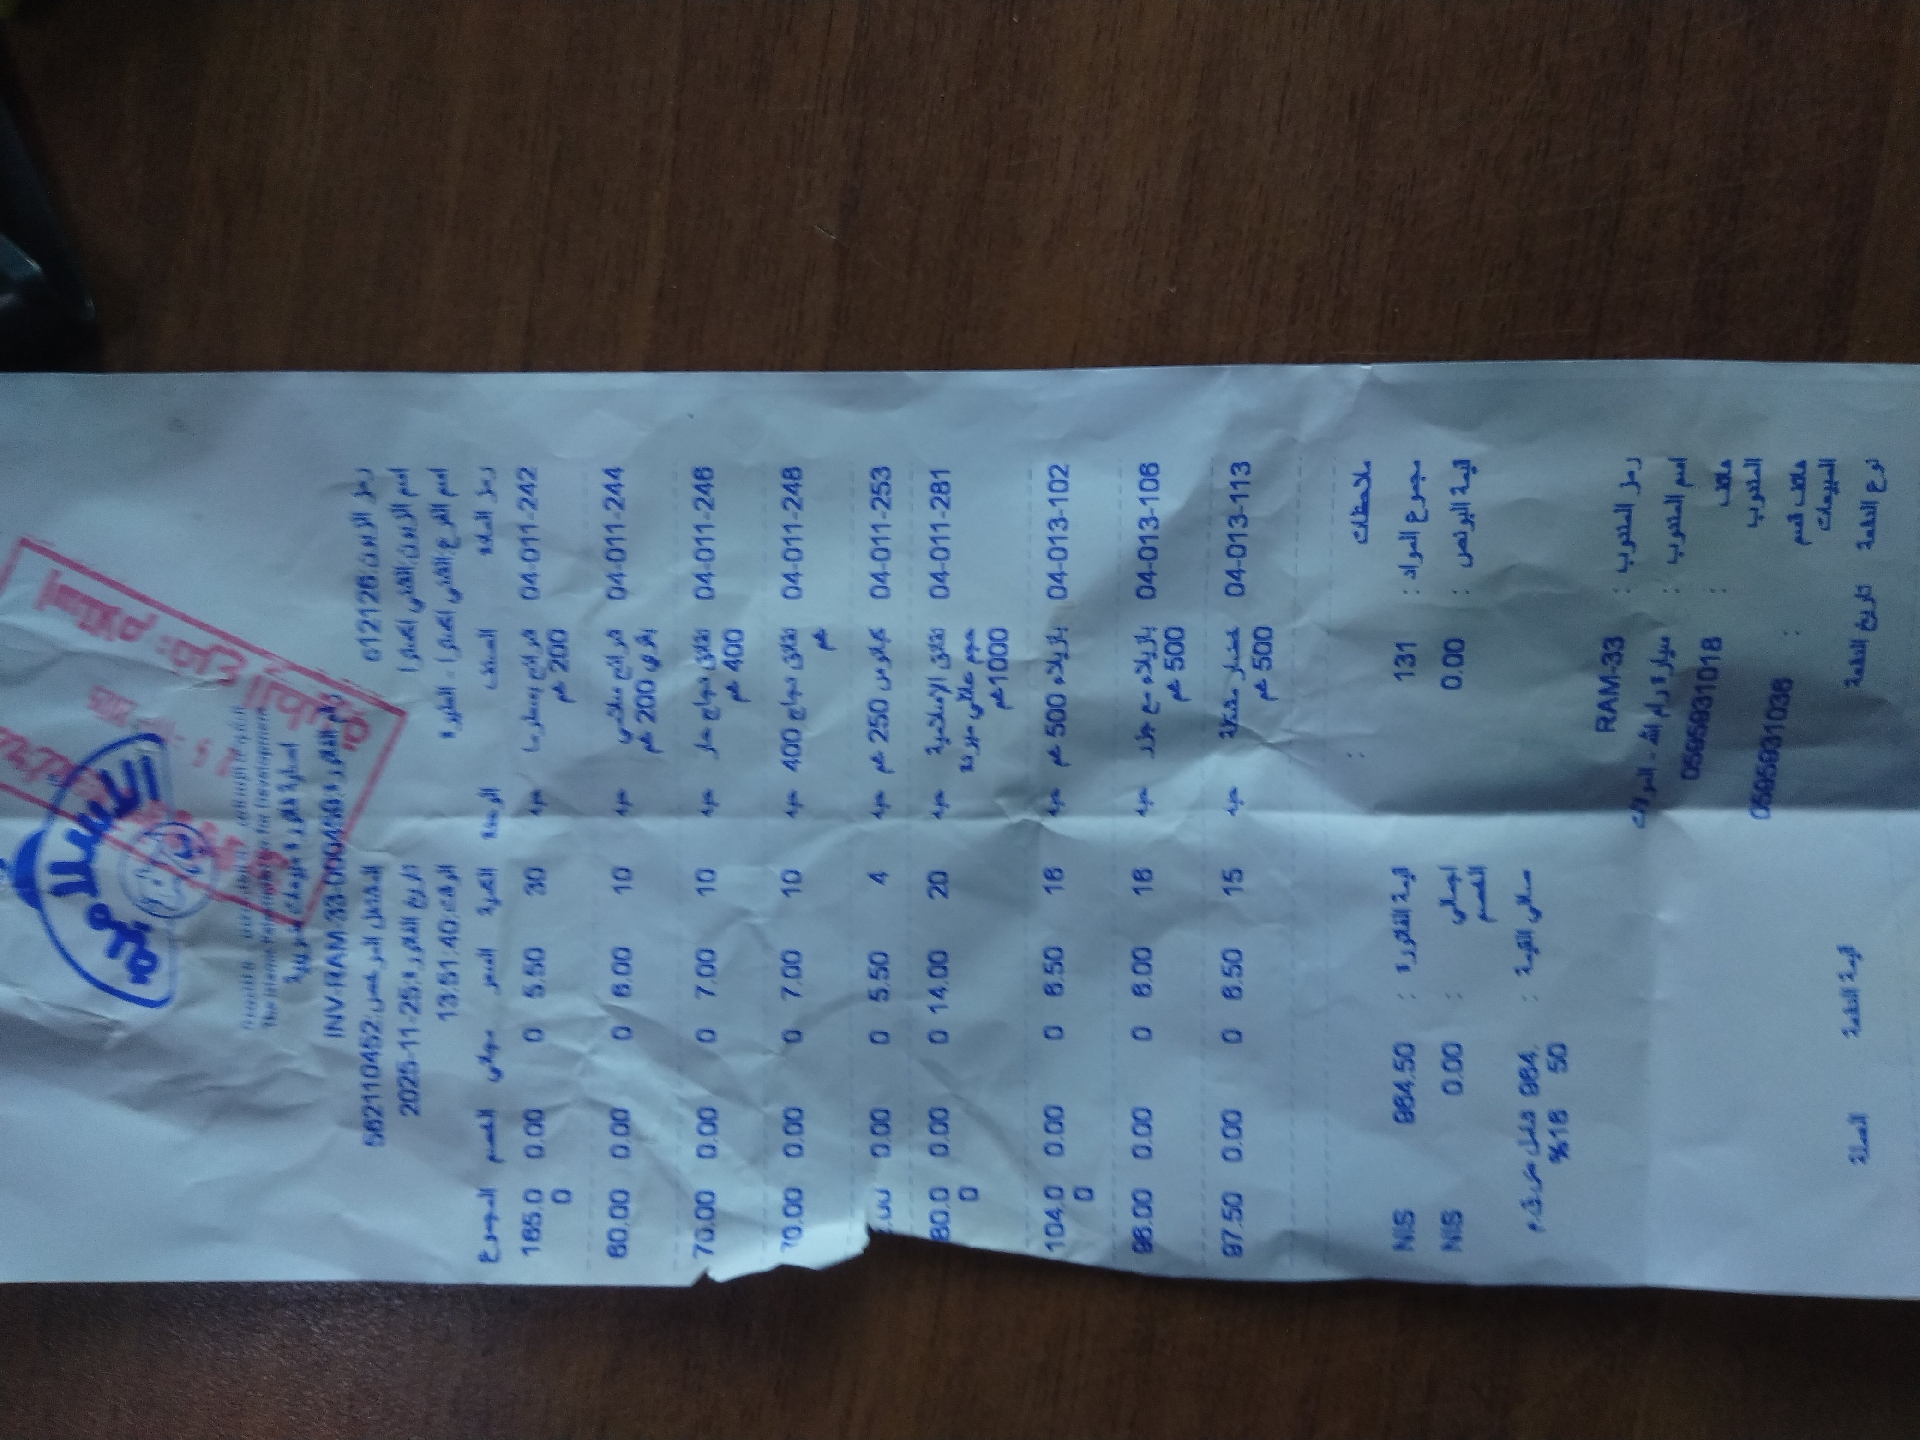 الإسلامي
The Islamic
for Development
INV-RAM-33-000450
رمز الزبون: 612126 المشتغل المرخص: 562110452
تاريخ الفاتورة: 2025-11-25
الوقت: 13:51:40
رمز المادة الصنف الوحدة الكمية السعر بونص الخصم المجموع
04-011-242 حبة 30 5.50 0 0.00 165.00
200 غم
04-011-244 حبة 10 6.00 0 0.00 60.00
بقري 200 غم
04-011-246 نقانق دجاج حار حبة 10 7.00 0 0.00 70.00
400 غم
04-011-248 نقانق دجاج 400 حبة 10 7.00 0 0.00 70.00
غم
04-011-253 250 غم حبة 4 5.50 0 0.00
04-011-281 نقانق الإسلامية حبة 20 14.00 0 0.00 80.00
حجم عائلي مبردة
1000غم
04-013-102 بازيلاء 500 غم حبة 16 6.50 0 0.00 104.00
04-013-106 بازيلاء مع جزر حبة 16 6.00 0 0.00 96.00
500 غم
04-013-113 خضار مشكلة حبة 15 6.50 0 0.00 97.50
500 غم
ملاحظات :
مجموع المواد : 131 قيمة الفاتورة : 984.50 NIS
قيمة البونص : 0.00 اجمالي الخصم : 0.00 NIS
صافي القيمة : 984.50 شامل ض.ق.م 16%
رمز المندوب : RAM-33
اسم المندوب : سيارة رام الله -
هاتف المندوب : 0595931018
هاتف قسم المبيعات : 0595931036
نوع الدفعة تاريخ الدفعة قيمة الدفعة العملة